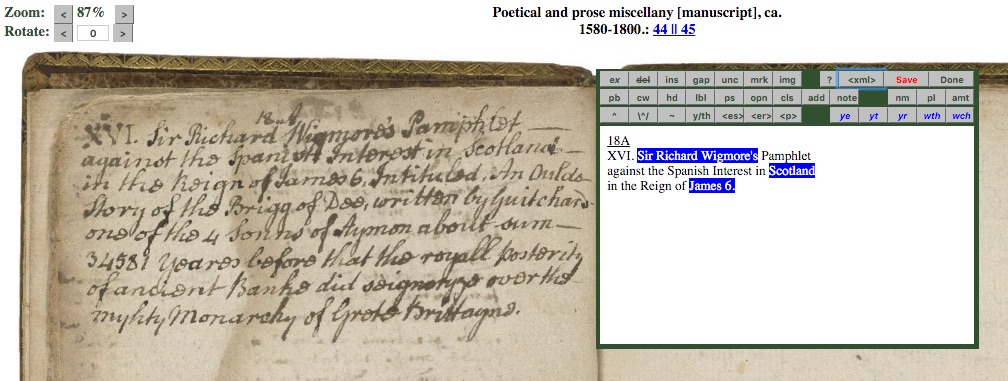 Zoom: < 87% >
Rotate: < 0 >
Poetical and prose miscellany [manuscript], ca.
1580-1800.: 44 || 45
ex del ins gap unc mrk img ? <xml> Save Done
pb cw hd lbl ps opn cls add note nm pl amt
^ \^/ ~ y/th <es> <er> <p> ye yt yr wth wch
18A
XVI. Sir Richard Wigmore's Pamphlet
against the Spanish Interest in Scotland
in the Reign of James 6.
XVI. Sir Richard Wigmore's Pamphlet
against the Spanish Interest in Scotland
in the Reign of James 6. Intituled, An Oulde
Story of the Brigg of Dee, written by Guitchard
one of the 4 Sonns of Aymon about sum
34581 Yeares before that the royall posterity
of ancient Banke did seignoryze over the
myhty Monarchy of Grete Brittayne.